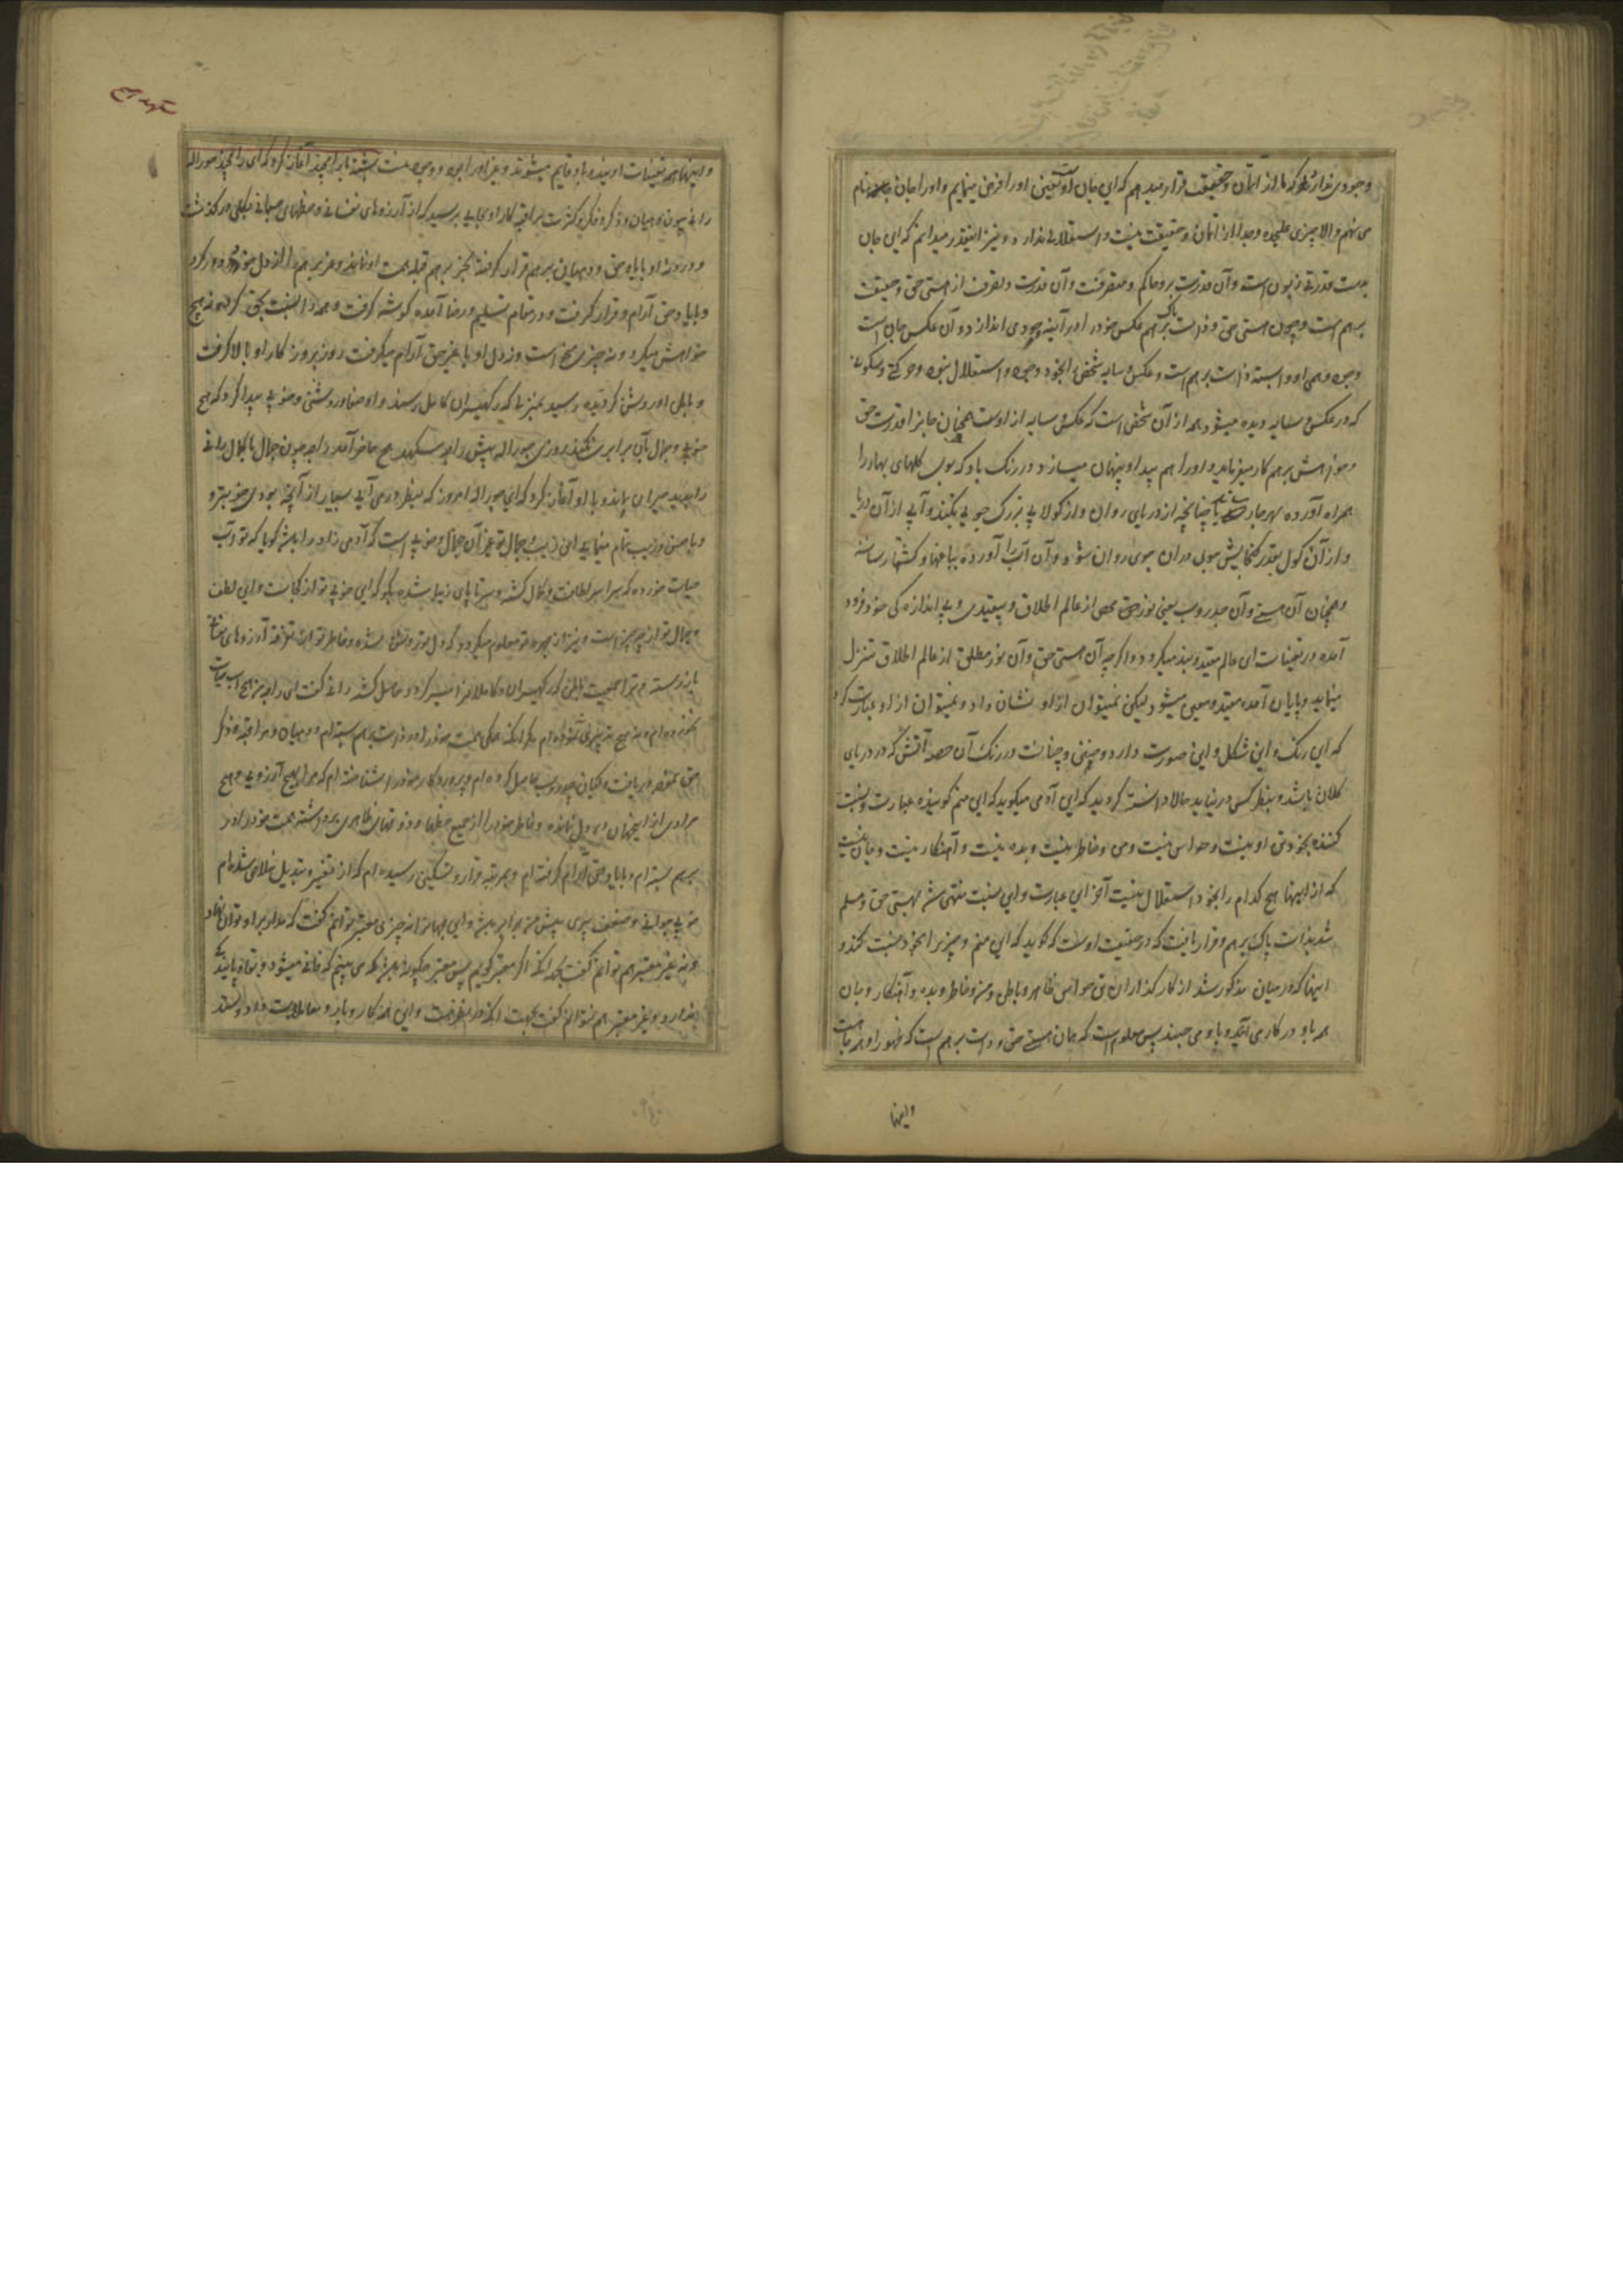 وجودی ندارد که ما از آن حقیقت قرار میدهم که این جان و تعین او را فرض مینمایم و او را جان نام
می نهم و الا چیزی علیحده و جدا از آن حقیقت نیست و استقلالی ندارد و نیز اینقدر میدانم که این جان
قدرتی زبون است و آن قدرت برو حاکم و متصرفست و آن قدرت و تصرف از هستی حق و حقیقت
برهم است و چون هستی حق و ذات برهم عکس خود را در آینه وجودی انداز دو آن عکس جان است
وجود و همی او وابسته ذات برهم است و عکس و سایه شخص را بخود وجود و استقلال نبود و حرکتی و سکونی
که در عکس و سایه دیده میشود همه از آن شخص است که عکس و سایه از اوست همچنان جانرا قدرت حق
و خواهش برهم کار میفرماید و او را هم پیدا و پنهان میسازد و در رنگ باد که بوی گلهای بهار را
همراه آورده بهر جا رساند چنانچه از دریای روان و از کولابی بزرگ جویی بکنند و آبی از آن دریا
و از آن کول بقدر گنجایش جوی در آن جوی روان شود و آن آب را آورده بباغها و کشتها رسانند
و همچنان آن هستی و آن چدروپ یعنی نور حق محض از عالم اطلاق و بیقیدی و بی اندازه گی خود فرود
آمده در تعینات این عالم مقید و بند میگردد و اگرچه آن هستی حق و آن نور مطلق از عالم اطلاق تنزل
مینماید و پایان آمده مقید و معین میشود لیکن نمیتوان از او نشان داد و نمیتوان از او عبارت کرد
که این رنگ و این شکل و این صورت دارد و چنین و چنانست در رنگ آن حصه آتش که در دریای
کلان باشد و بنظر کسی در نیاید حالا دانسته گردید که این آدمی میگوید که این منم گوینده عبارت و نسبت
کننده بخود تن او نیست و حواس نیست و من و خاطر نیست و بده نیست و آهنکار نیست و جان نیست
که از اینها هیچ کدام را بخود استقلال نیست آخر این عبارت و این نسبت منتهی شد بهستی حق و مسلم
شد بذات پاک برهم و قرار یافت که در حقیقت اوست که گوید که این منم و چیز را بخود نسبت کند و
اینها که در میان مذکور شد از کار گذاران تن حواس ظاهر و باطن و من و خاطر و بده و آهنکار و جان
همه باو در کار می آید و باو می جنبد پس معلوم است که همان هستی حق و ذات برهم است که ظهور او همه جاست
و اینها
و اینها همه تعینات اویند و باو قایم میشوند و غیر او را بود و وجود نیست بششت با رامچند آغاز کرد که ای رامچند چوراله
رانی چون بدهیان و ذکر و فکر و کثرت مراقبه کار او بجایی رسید که از آرزوهای نفسانی و حظهای جسمانی بکلی در گذشت
و درونه او بیاد حق و دهیان برهم قرار گرفته بجز برهم قبله همت او نماند و غیر برهم را از دل خود دور کرد
و بیاد حق آرام و قرار گرفت و در مقام تسلیم و رضا آمده گوشه گرفت و همه را نسبت بحق کرده نه هیچ
خواهش میکرد و نه چیزی میخواست و نه دل او با غیر حق آرام میگرفت روز بروز کار او بالا گرفت
و باطن او روشن گردیده رسید بمنزلی که رکهیسران کامل رسند و او صفا و روشنی و خوبی پیدا کرد که هیچ
خوبی و جمال بآن برابری نکند روزی چوراله پیش راجه سکهدهج حاضر آمد راجه چون جمال با کمال رانی
را بدید حیران بماند و با او آغاز کرد که ای چوراله امروز که بنظر در می آیی بسیار از آنچه بودی خوبتر و
با حسن و زیب تمام مینمایی این زیب و جمال تو غیر آن جمال و خوبی است که آدمی زاد را باشد گویا که تو آب
حیات خورده که سراسر لطافت و کمال گشته و سر تا پای زیبا شده بگو که این خوبی تو از کجاست و این لطف
و جمال تو از چه چیز است و نیز از چهره تو معلوم میگردد که دل تو روشن شده و خاطر تو از تفرقه آرزوهای
باز رسته و ترا جمعیت باطن که رکهیسران و کاملانرا میسر گردد حاصل گشته رانی گفت ای راجه من هیچ آب حیات
نخورده ام و نه هیچ تدبیری نموده ام مگر اینکه همگی همت خود را در ذات برهم بسته ام و دهیان و مراقبه و ذکر
حق بمقصد دریافت و گیان چدروپ حاصل کرده ام و پروردگار خود را شناخته ام که مرا هیچ آرزویی و هیچ
مرادی از این جهان در دل نمانده و خاطر خود را از جمیع حظها و ذوقهای ظاهری برداشته همت خود را در
برهم بسته ام و بیاد حق آرام گرفته ام و بمرتبه قرار و تسکین رسیده ام که از تغیر و تبدیل خلاص شده ام
خوبی جوانی و ضعف پیری پیش من برابر باشد و این جهانرا نه چیزی معتبر توانم گفت که مدار برو توان نهاد
و نه غیر معتبر هم توانم گفت بجهت آنکه اگر معتبر گویم پس معتبر چگونه باشد که می بینم که فانی میشود و بقا و پایندگی
ندارد و غیر معتبر هم نتوانم گفت بجهت آنکه در نظر هست و این همه کار و بار و معاملات داد و ستد